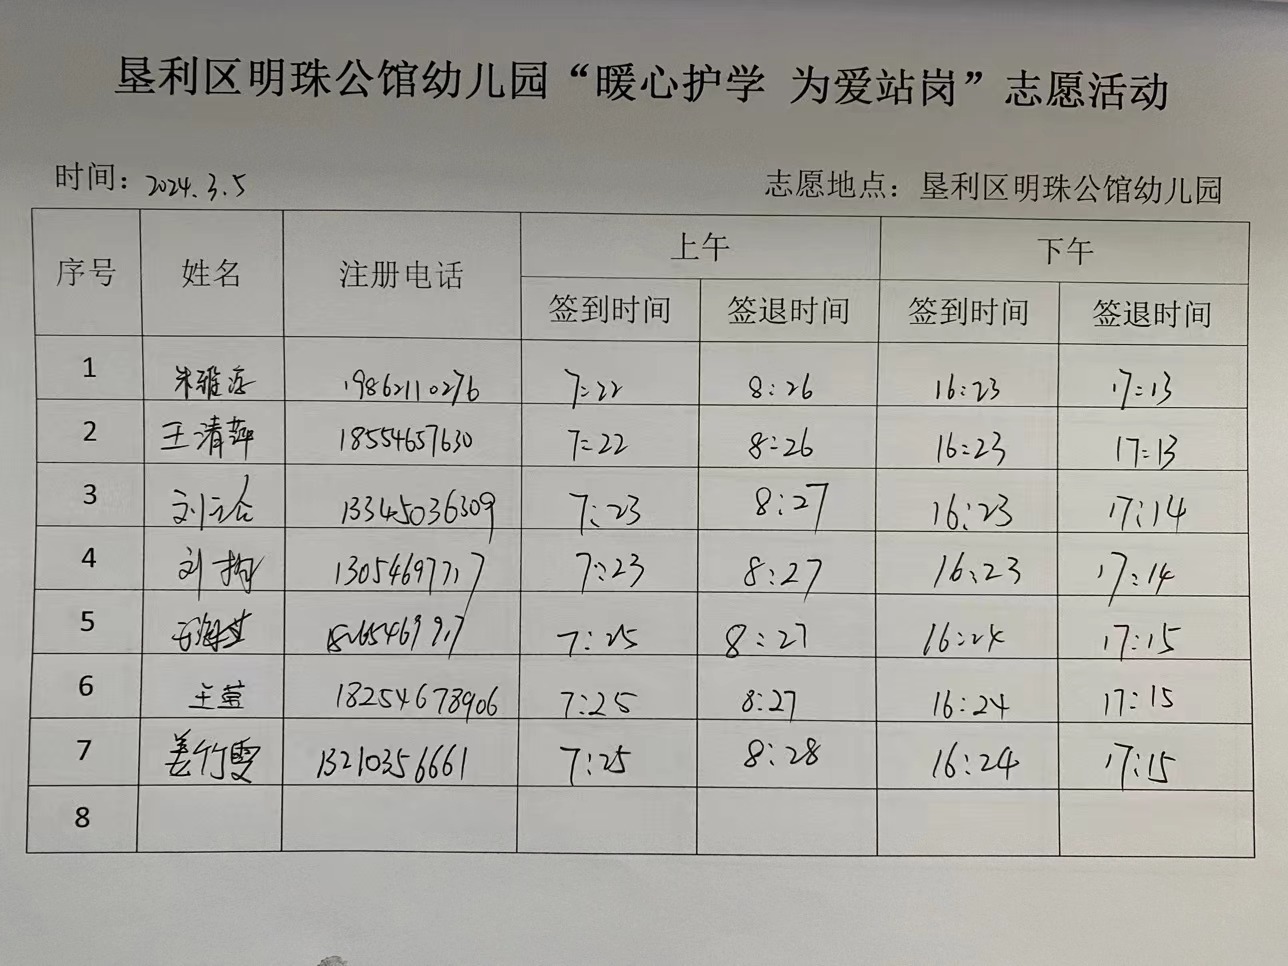 垦利区明珠公馆幼儿园“暖心护学 为爱站岗”志愿活动
时间：2024.3.5 志愿地点：垦利区明珠公馆幼儿园
序号 姓名 注册电话 上午 下午
签到时间 签退时间 签到时间 签退时间
1 朱雅 19862110276 7:22 8:26 16:23 17:13
2 王清萍 18554657630 7:22 8:26 16:23 17:13
3 刘 13345036309 7:23 8:27 16:23 17:14
4 刘 13054697717 7:23 8:27 16:23 17:14
5 7:25 8:27 16:24 17:15
6 王萱 18254678906 7:25 8:27 16:24 17:15
7 姜竹雯 13210356661 7:25 8:28 16:24 17:15
8